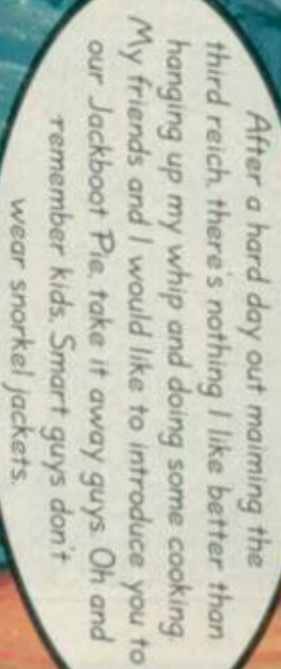 After a hard day out maiming the
third reich, there's nothing I like better than
hanging up my whip and doing some cooking.
My friends and I would like to introduce you to
our Jackboot Pie, take it away guys. Oh and
remember kids. Smart guys don't
wear snorkel jackets.